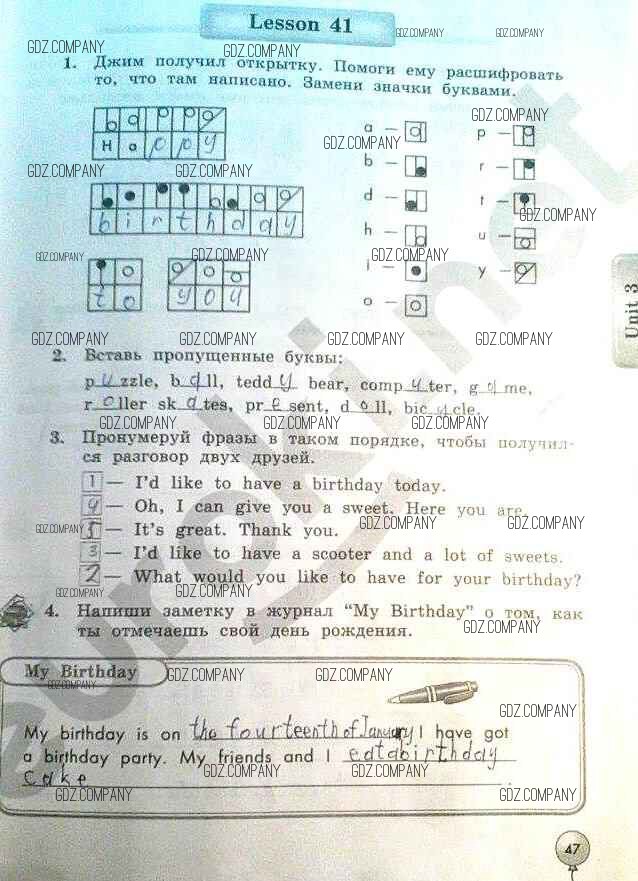 Lesson 41
1. Джим получил открытку. Помоги ему расшифровать
то, что там написано. Замени значки буквами.
H a p p y
b i r t h d a y
t o y o u
a – p –
b – r –
d – t –
h – u –
i – y –
o –
2. Вставь пропущенные буквы:
puzzle, ball, teddy bear, computer, game,
roller skates, present, doll, bicycle.
3. Пронумеруй фразы в таком порядке, чтобы получил-
ся разговор двух друзей.
1 — I'd like to have a birthday today.
4 — Oh, I can give you a sweet. Here you are.
5 — It's great. Thank you.
3 — I'd like to have a scooter and a lot of sweets.
2 — What would you like to have for your birthday?
4. Напиши заметку в журнал “My Birthday” о том, как
ты отмечаешь свой день рождения.
My Birthday
My birthday is on the fourteenth of January I have got
a birthday party. My friends and I eat a birthday
cake .
Unit 3
47
GDZ.COMPANY
euroki.net